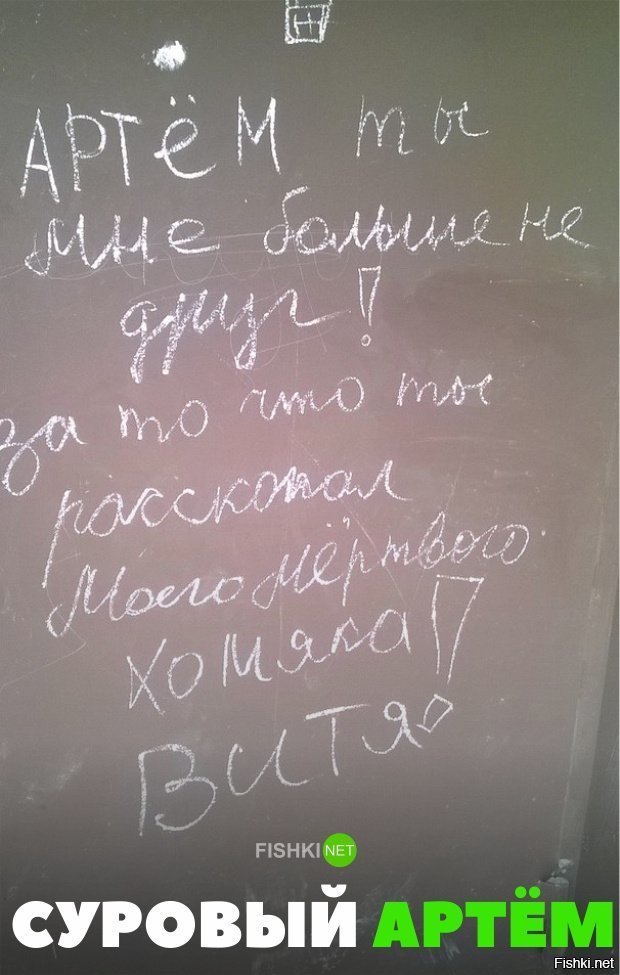 АРТЁМ ты
мне больше не
друг!
за то что ты
расскопал
Моего мёртвого
хомяка!
ВИТЯ
FISHKI NET
СУРОВЫЙ АРТЁМ
Fishki.net